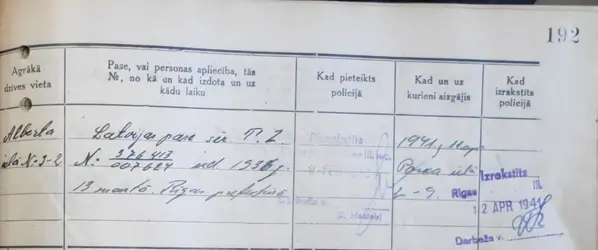 192
Agrākā
dzīves vieta
Pase, vai personas apliecība, tās
№, no kā un kad izdota un uz
kādu laiku
Kad pieteikts
policijā
Kad un uz
kurieni aizgājis
Kad
izrakstīts
policijā
Alberta
ielā N-3-2
Latvijas pase sēr. T. Z.
N. 376413
007624 izd. 1936 g.
13 martā Rīgas prefektūrā
III
1941
4-9.
Rīgas Izrakstīts
III
12 APR 1941
Darbveža v.